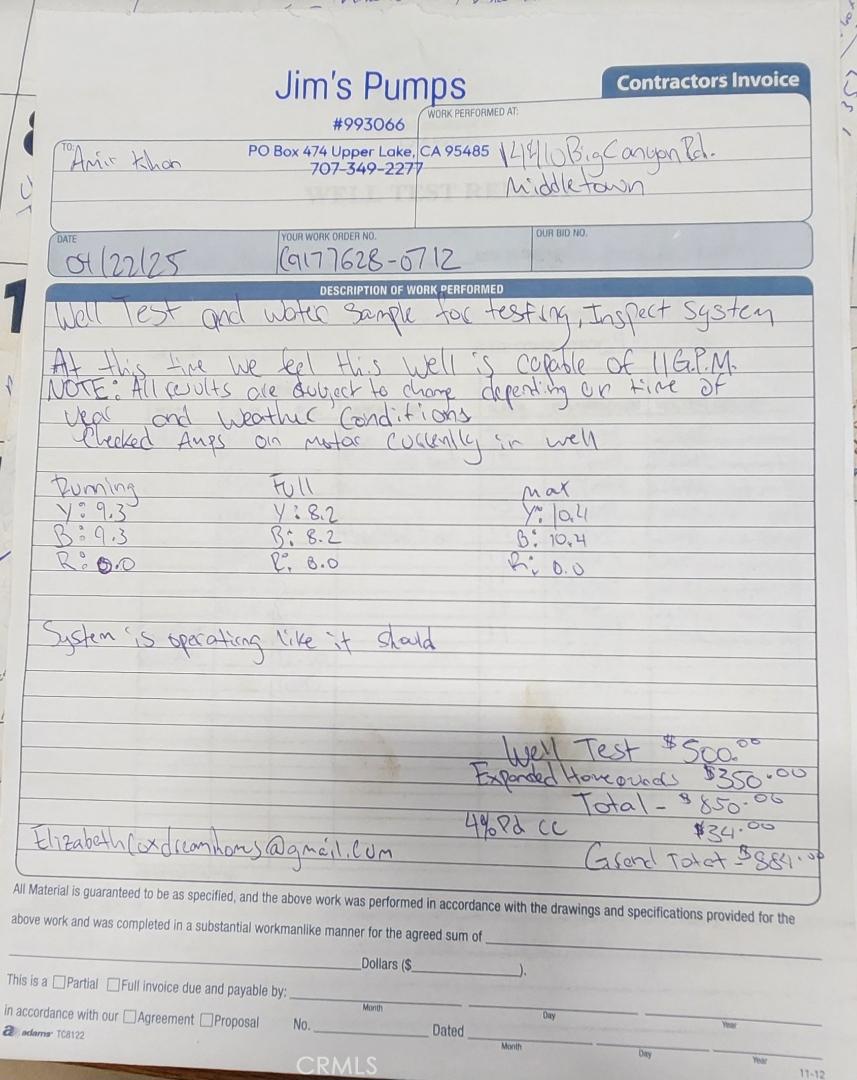 Jim's Pumps
Contractors Invoice
#993066
WORK PERFORMED AT:
TO:
Amir Khan
PO Box 474 Upper Lake, CA 95485
14410 Big Canyon Rd.
707-349-2277
Middletown
DATE
YOUR WORK ORDER NO.
OUR BID NO.
04/22/25
(917)628-0712
DESCRIPTION OF WORK PERFORMED
Well Test and water sample for testing, Inspect System
At this time we feel this well is capable of 11 G.P.M.
NOTE: All results are subject to change depending on time of
year and weather conditions
Checked Amps on motor currently in well
Running Full Max
Y: 9.3 Y: 8.2 Y: 10.4
B: 9.3 B: 8.2 B: 10.4
R: 0.0 R: 0.0 R: 0.0
System is operating like it should
Well Test $500.00
Expanded $350.00
Total - $850.00
4% Pd CC $34.00
Elizabethcoxdreamhomes@gmail.com
Grand Total - $884.00
All Material is guaranteed to be as specified, and the above work was performed in accordance with the drawings and specifications provided for the
above work and was completed in a substantial workmanlike manner for the agreed sum of
Dollars ($ ).
This is a Partial Full invoice due and payable by:
Month Day Year
in accordance with our Agreement Proposal No. Dated
Month Day Year
a adams TC8122
11-12
CRMLS